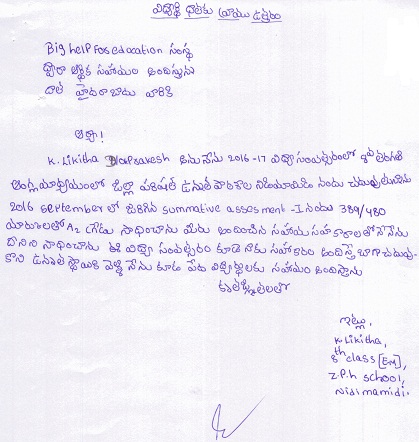 విద్యార్థి దాతకు వ్రాయు ఉత్తరం
Big help For education సంస్థ
ద్వారా ఆర్థిక సహాయం అందిస్తున్న
దాత హైదరాబాదు వారికి
అయ్యా!
K. Likitha D/o Prakash అను నేను 2016-17 విద్యా సంవత్సరంలో 8వ తరగతి
ఆంగ్లమాధ్యమంలో జిల్లా పరిషత్ ఉన్నత పాఠశాల నిడిమామిడి నందు చదువుతున్నాను
2016 September లో జరిగిన summative assesment - I నందు 389/480
మార్కులతో A2 గ్రేడు సాధించాను మీరు అందించిన సహాయ సహకారాలతోనే నేను
దీనిని సాధించాను ఈ విద్యా సంవత్సరం కూడా నాకు సహకారం అందిస్తే బాగా చదువు-
కొని ఉన్నత స్థాయికి వెళ్ళి నేను కూడా పేద విద్యార్థులకు సహాయం అందిస్తాను
కృతజ్ఞతలతో
ఇట్లు,
K. Likitha,
8th class [EM],
Z.P.h school,
Nidimamidi.